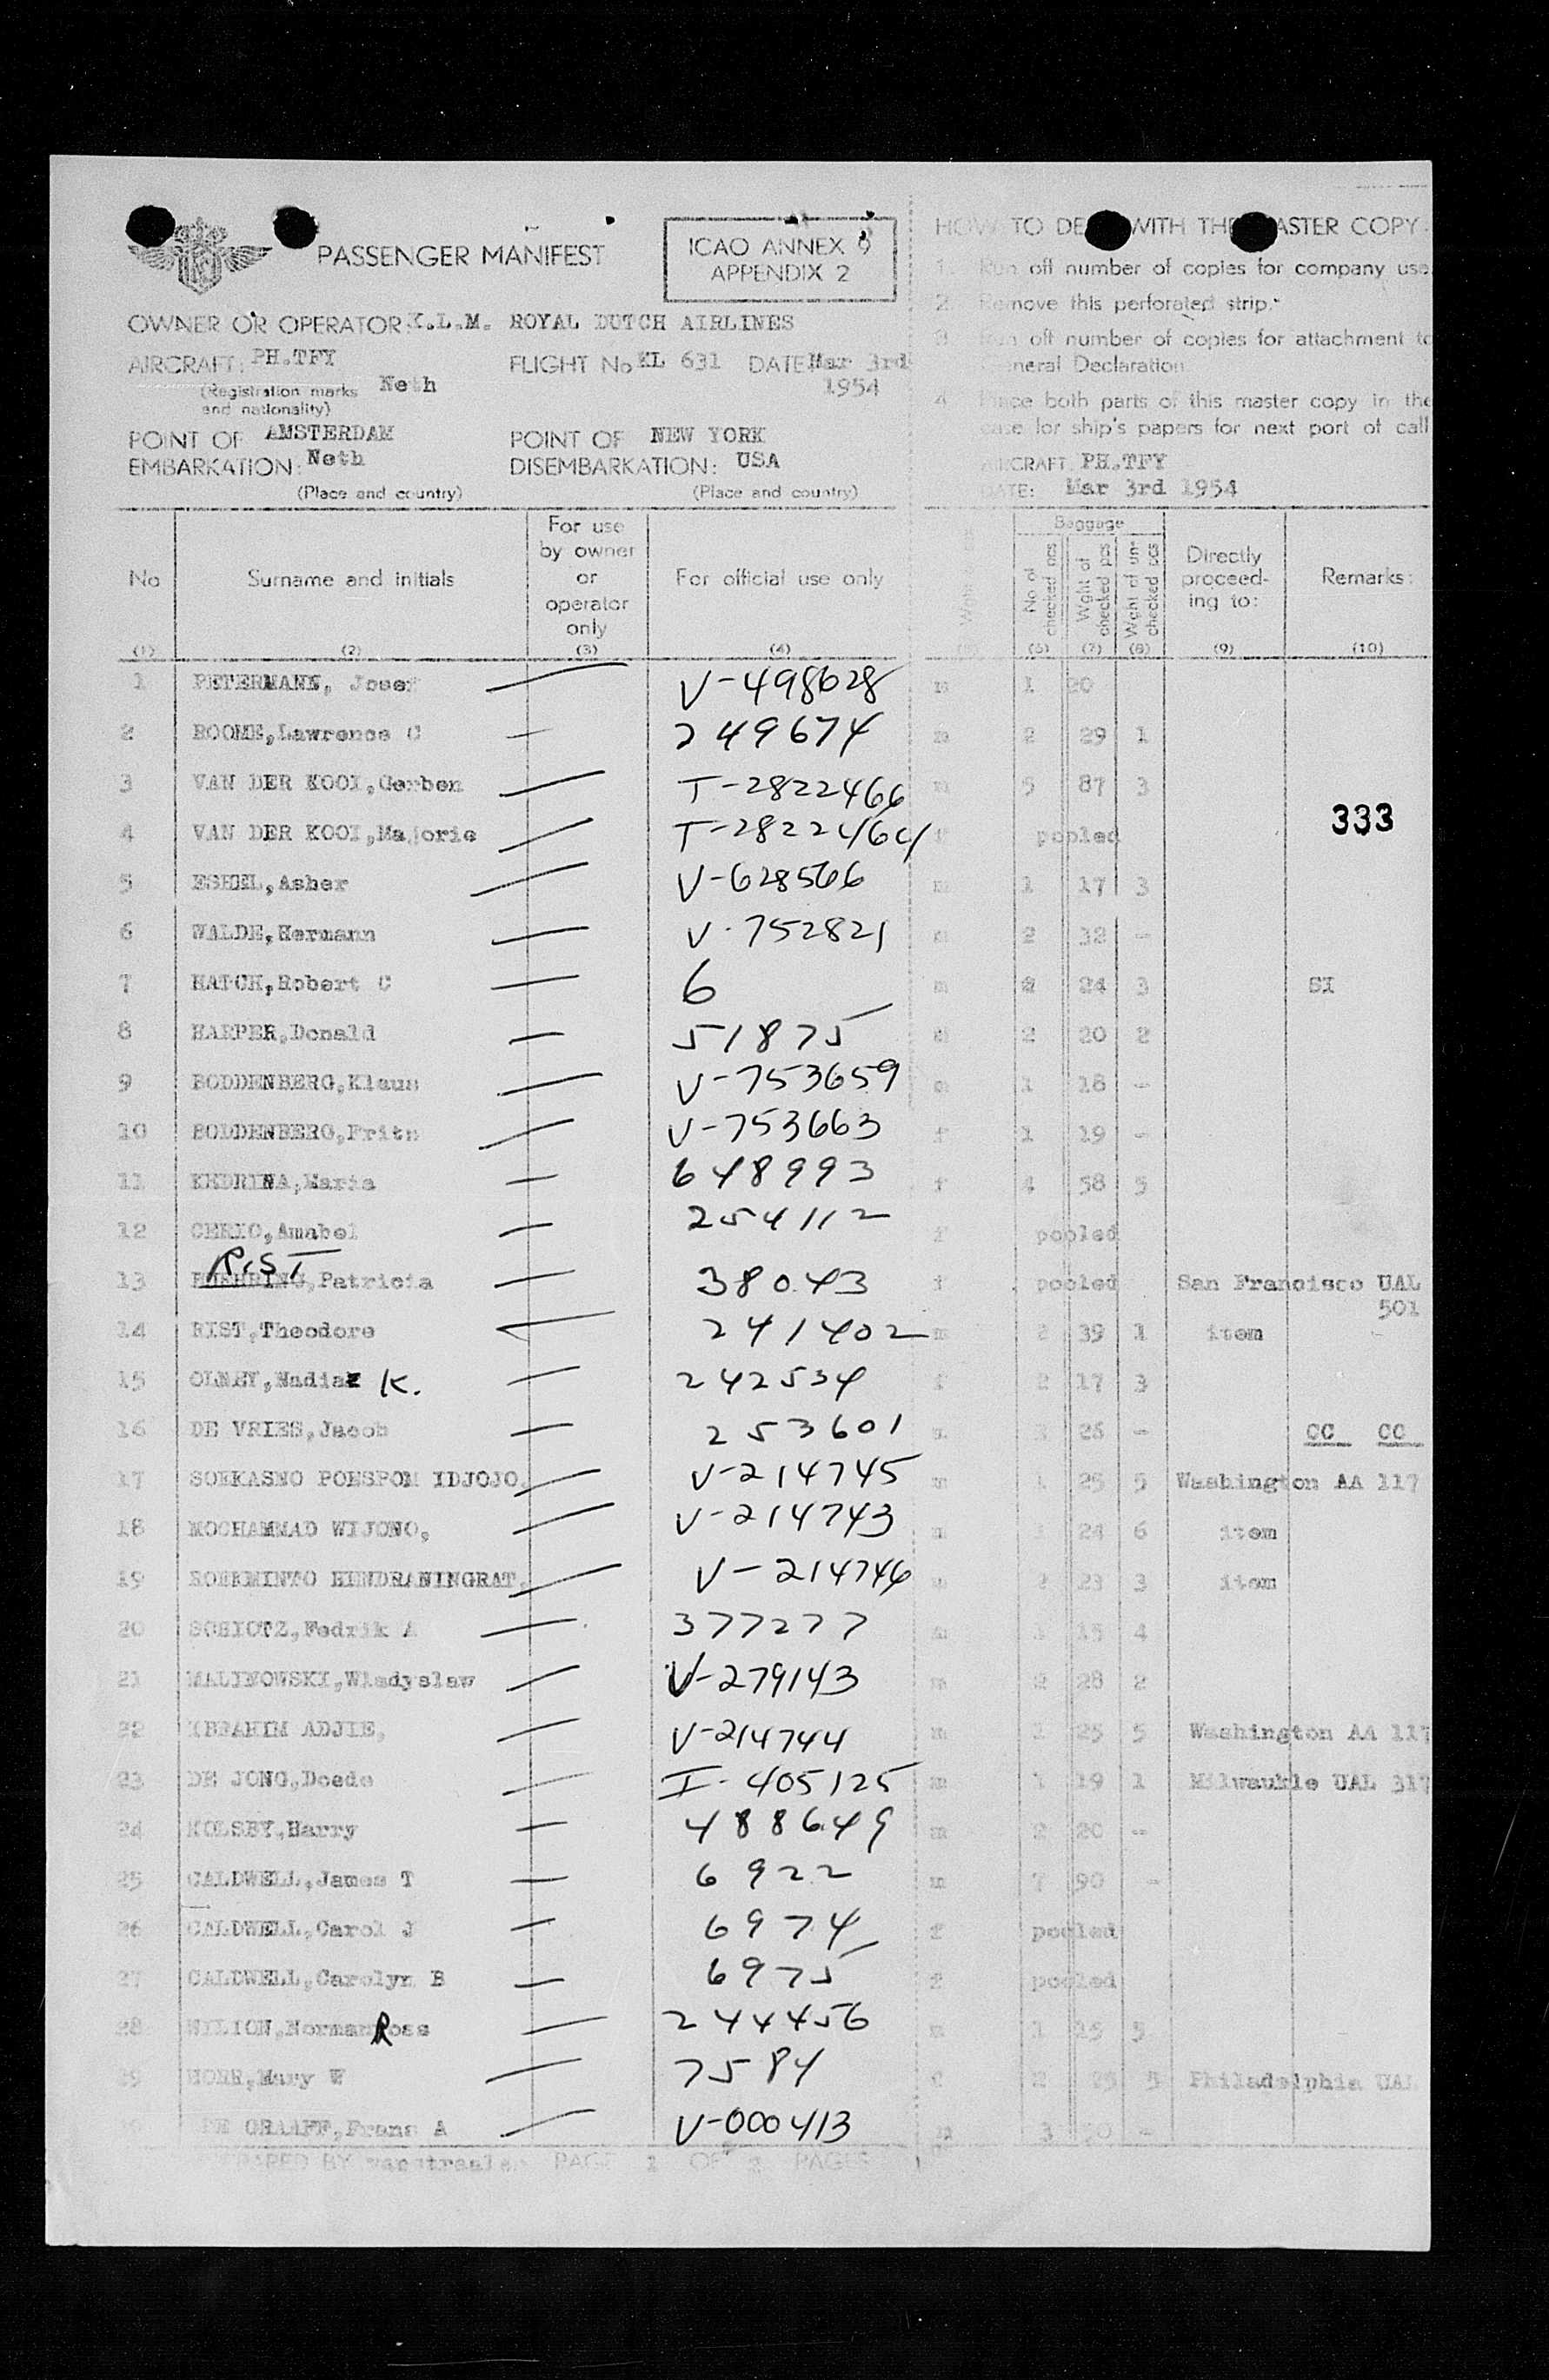 PASSENGER MANIFEST
ICAO ANNEX 9
APPENDIX 2
HOW TO DE WITH THE MASTER COPY
1. Run off number of copies for company use
2. Remove this perforated strip.
3. Run off number of copies for attachment to
General Declaration
4. Place both parts of this master copy in the
case for ship's papers for next port of call
OWNER OR OPERATOR: K.L.M. ROYAL DUTCH AIRLINES
AIRCRAFT: PH.TFY FLIGHT No KL 631 DATE Mar 3rd
(Registration marks and nationality) Neth 1954
POINT OF EMBARKATION: AMSTERDAM Neth
POINT OF DISEMBARKATION: NEW YORK USA
(Place and country) (Place and country)
AIRCRAFT: PH.TFY
DATE: Mar 3rd 1954
No Surname and initials For use by owner or operator only For official use only Baggage No of checked pcs Wght of checked pcs Wght of un-checked pcs Directly proceed-ing to: Remarks:
(1) (2) (3) (4) (6) (7) (8) (9) (10)
1 PETERMANN, Josef V-498628 m 1 20
2 ROOME, Lawrence C 249674 m 2 29 1
3 VAN DER KOOI, Gerben T-2822466 m 5 87 3
333
4 VAN DER KOOI, Majorie T-2822464 f pooled
5 ESHEL, Asher V-628566 m 1 17 3
6 WALDE, Hermann V-752821 m 2 32 -
7 HATCH, Robert C 6 m 2 24 3 SI
8 HARPER, Donald 51875 m 2 20 2
9 BODDENBERG, Klaus V-753659 m 1 18 -
10 BODDENBERG, V-753663 f 1 19 -
11 KEDRINA, Maria 648993 f 4 58 5
12 Anabel 254112 f pooled
RIST
13 Patricia 38043 f pooled San Francisco UAL
501
14 RIST, Theodore 241402 m 2 39 1 item
15 OLNEY, Nadia K. 242534 f 2 17 3
16 DE VRIES, Jacob 253601 m 3 26 - CC CC
17 SOEKASNO POESPOM IDJOJO, V-214745 m 1 25 5 Washington AA 117
18 MOCHAMMAD WIJONO, V-214743 m 24 6 item
19 HINDRANINGRAT, V-214746 m 2 23 3 item
20 Fedrik A 377277 m 15 4
21 MALINOWSKI, Wladyslaw V-279143 m 2 28 2
22 IBRAHIM ADJIE, V-214744 m 1 25 5 Washington AA 117
23 DE JONG, Doede I-405125 m 1 19 1 Milwaukie UAL 317
24 Harry 488649 m 2 20 -
25 CALDWELL, James T 6922 m 7 90 -
26 CALDWELL, Carol J 6974 f pooled
27 CALDWELL, Carolyn B 6975 f pooled
28 Norman Ross 244456 m 1 25 5
29 Mary W 7584 f 2 25 5 Philadelphia UAL
DE GRAAFF, Frans A V-000413 m 3 -
PREPARED BY PAGE 1 OF 2 PAGES